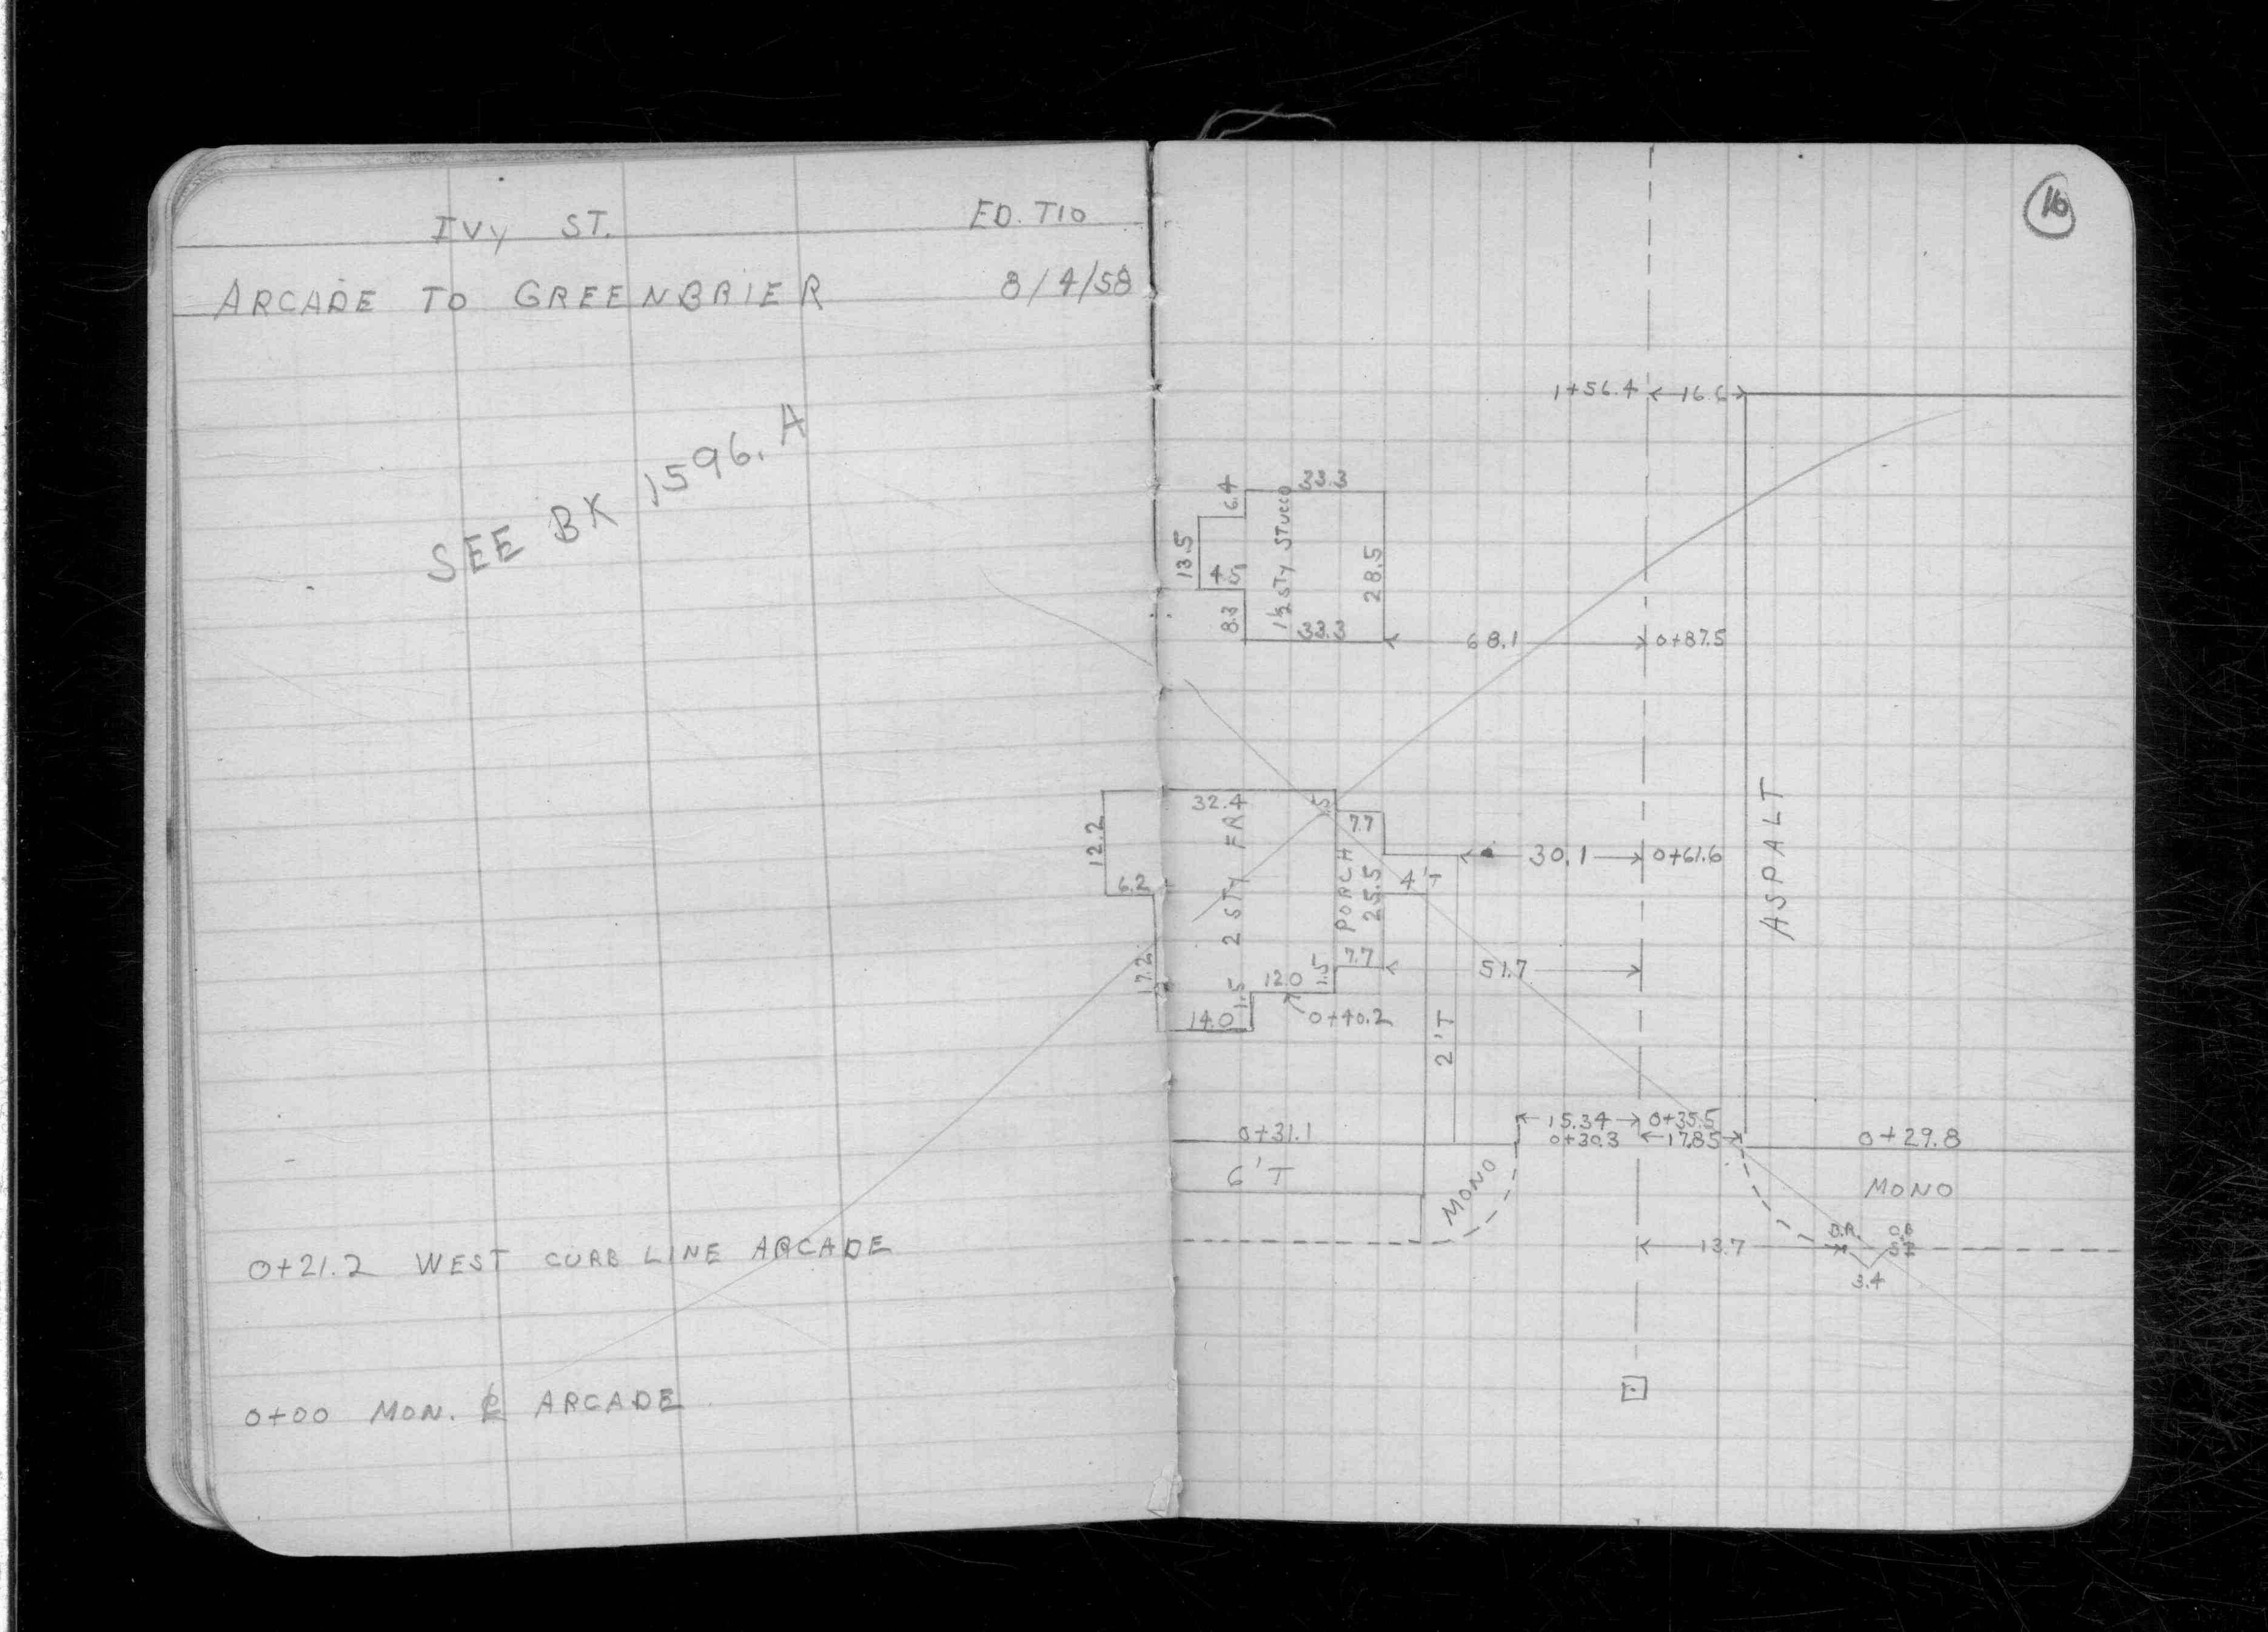 IVY ST. ED. TIO
ARCADE TO GREENBRIER 8/4/58
SEE BK 1596. A
0+21.2 WEST CURB LINE ARCADE
0+00 MON. ℄ ARCADE
16
1+56.4 16.6
33.3
6.4
13.5
4.5
8.3
1½ STY STUCCO
28.5
33.3
68.1 0+87.5
32.4
1.5
7.7
12.2
6.2
2 STY FR
PORCH
25.5
4'T
30.1 0+61.6
ASPALT
17.2
7.7
51.7
12.0
1.5
1.5
14.0
0+40.2
2'T
15.34 0+35.5
0+31.1
0+30.3 17.85
0+29.8
6'T
MONO
MONO
13.7
B.R.
3.4